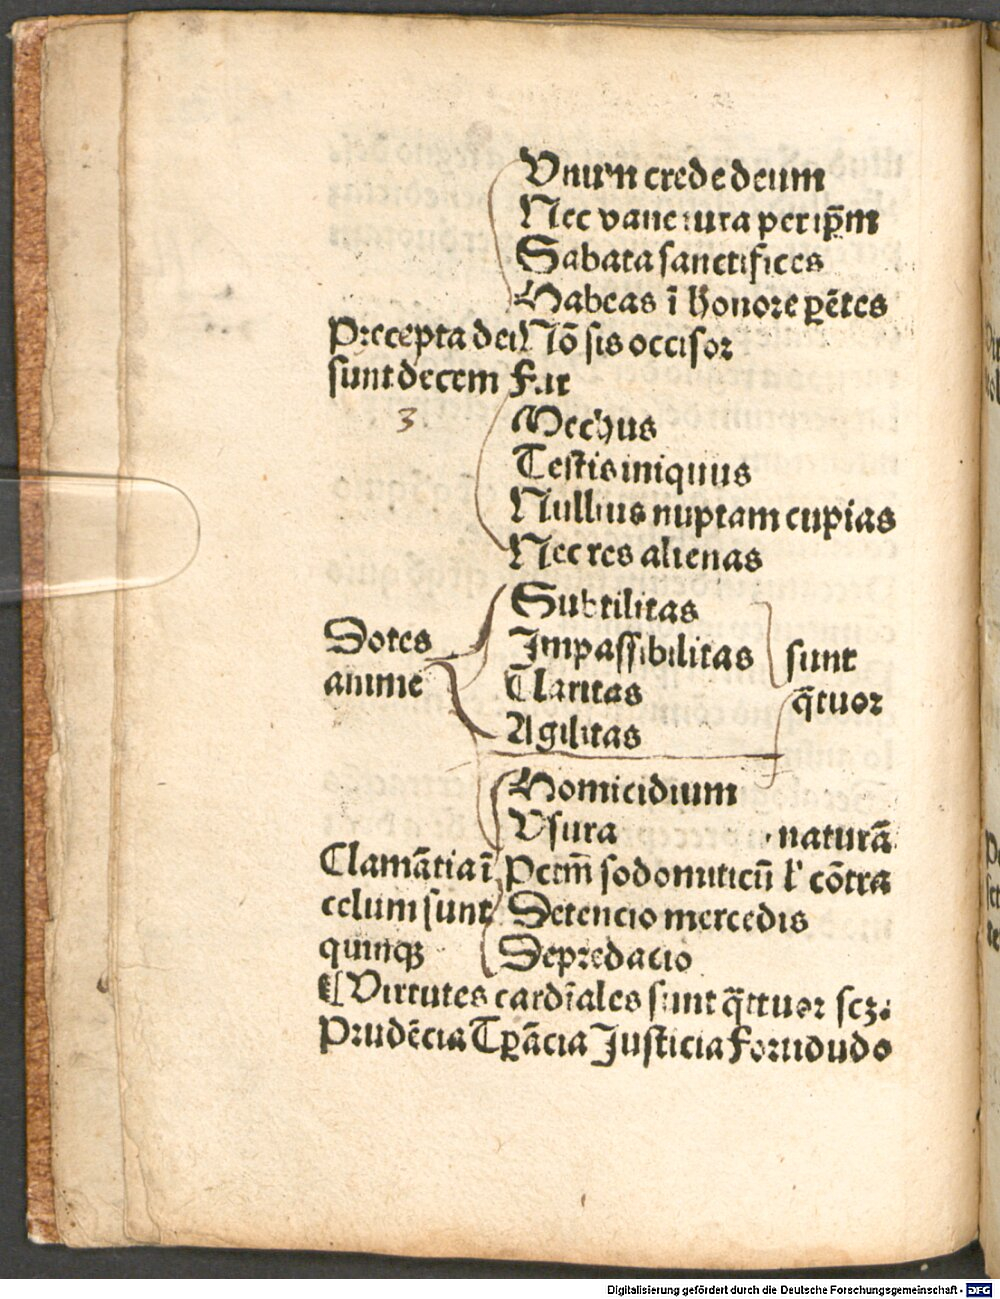 Vnum crede deum
Nec vane iura per ip̄m
Sabata sanctifices
Habeas ī honore pētes
Precepta dei Nō sis occisor
sunt decem Fur
3
Mechus
Testis iniquus
Nullius nuptam cupias
Nec res alienas
Subtilitas
Dotes
Impassibilitas sunt
anime Claritas q̄tuor
Agilitas
Homicidium
Vsura naturā
Clamātia ī Pctm̄ sodomiticū l' cōtra
celum sunt Detencio mercedis
quinqꝫ Depredacio
¶ Virtutes cardīales sunt q̄ttuor scꝫ.
Prudēcia Tꝑācia Justicia Fortitudo
Digitalisierung gefördert durch die Deutsche Forschungsgemeinschaft - DFG